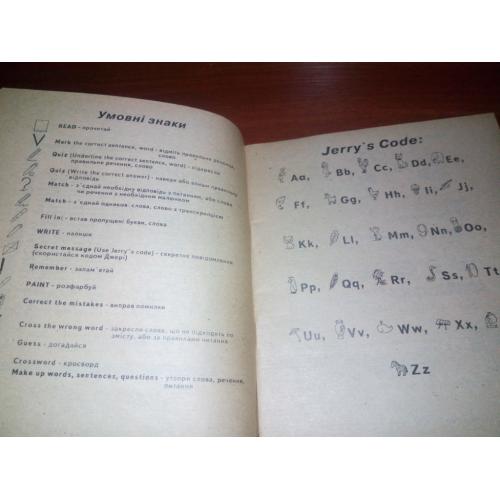 Умовні знаки
READ - прочитай
Mark the correct sentence, word - відміть правильне речення,
слово
Quiz (Underline the correct sentence, word) - підкресли
правильне речення, слово
Quiz (Write the correct answer) - напиши
відповідь
Match - з´єднай необхідну відповідь з питанням, або слова
чи речення з необхідним малюнком
Match - з´єднай однакові слова, слово з транскрипцією
Fill in: встав пропущені букви, слова
WRITE - напиши
Secret message (Use Jerry`s code) - секретне повідомлення
(скористайся кодом Джері)
Remember - запам´ятай
PAINT - розфарбуй
Correct the mistakes - виправ помилки
Cross the wrong word - закресли слова, що не підходять по
змісту, або за правилами читання
Guess - догадайся
Crossword - кросворд
Make up words, sentences, questions - утвори слова, речення,
питання
Jerry`s Code:
Aa, Bb, Cc, Dd, Ee,
Ff, Gg, Hh, Ii, Jj,
Kk, Ll, Mm, Nn, Oo,
Pp, Qq, Rr, Ss, Tt
Uu, Vv, Ww, Xx,
Zz